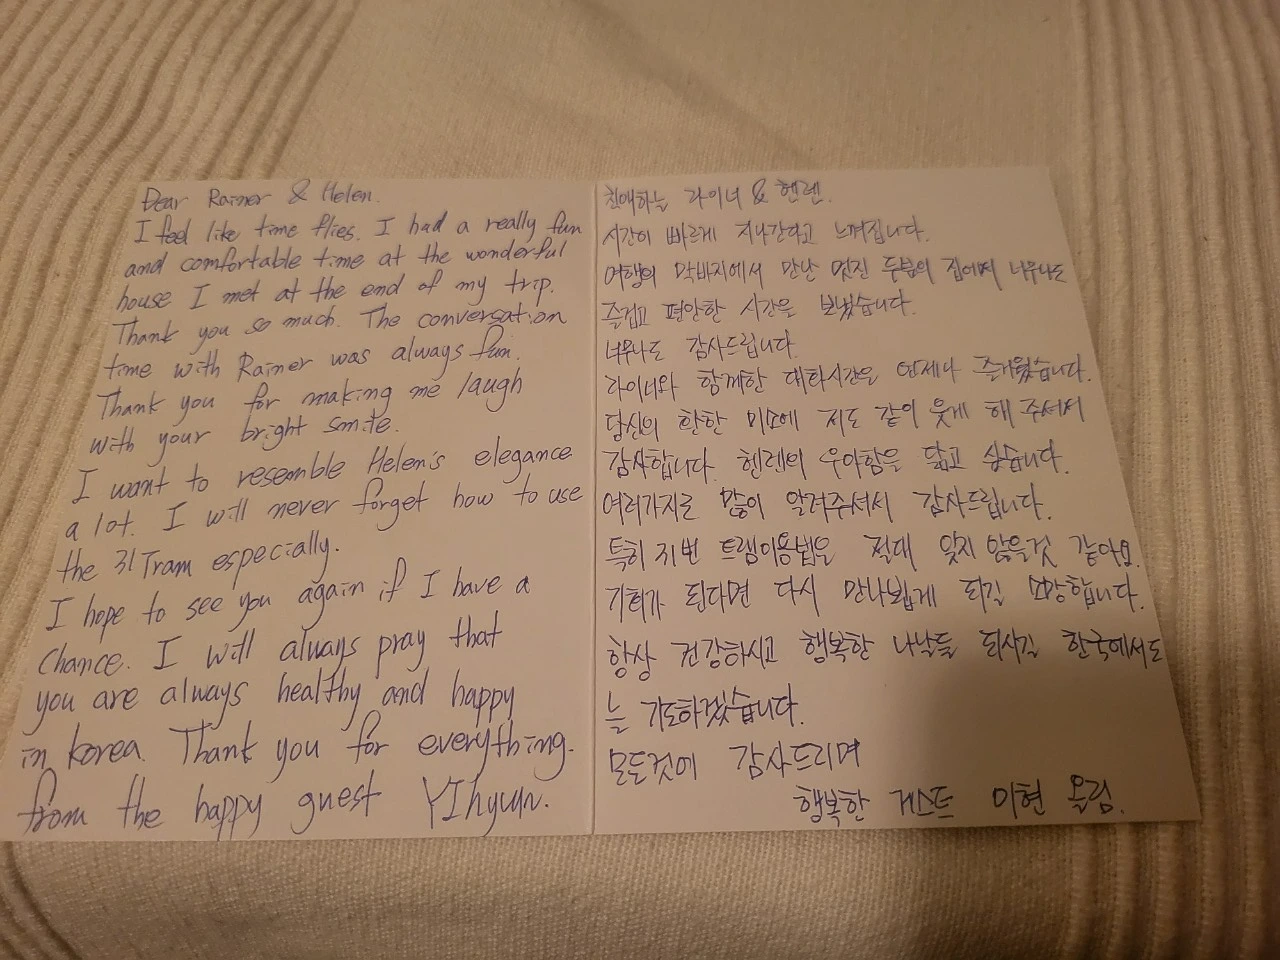 Dear Rainer & Helen.
I feel like time flies. I had a really fun
and comfortable time at the wonderful
house I met at the end of my trip.
Thank you so much. The conversation
time with Rainer was always fun.
Thank you for making me laugh
with your bright smile.
I want to resemble Helen's elegance
a lot. I will never forget how to use
the 31 Tram especially.
I hope to see you again if I have a
chance. I will always pray that
you are always healthy and happy
in korea. Thank you for everything.
from the happy guest YIhyun.
친애하는 라이너 & 헬렌.
시간이 빠르게 지나간다고 느껴집니다.
여행의 막바지에서 만난 멋진 두분의 집에서 너무나도
즐겁고 편안한 시간을 보냈습니다.
너무나도 감사드립니다.
라이너와 함께한 대화시간은 언제나 즐거웠습니다.
당신의 환한 미소에 저도 같이 웃게 해 주셔서
감사합니다. 헬렌의 우아함을 닮고 싶습니다.
여러가지로 많이 알려주셔서 감사드립니다.
특히 31번 트램이용법은 절대 잊지 않을것 같아요.
기회가 된다면 다시 만나뵙게 되길 소망합니다.
항상 건강하시고 행복한 나날들 되시길 한국에서도
늘 기도하겠습니다.
모든것에 감사드리며
행복한 게스트 이현 올림.